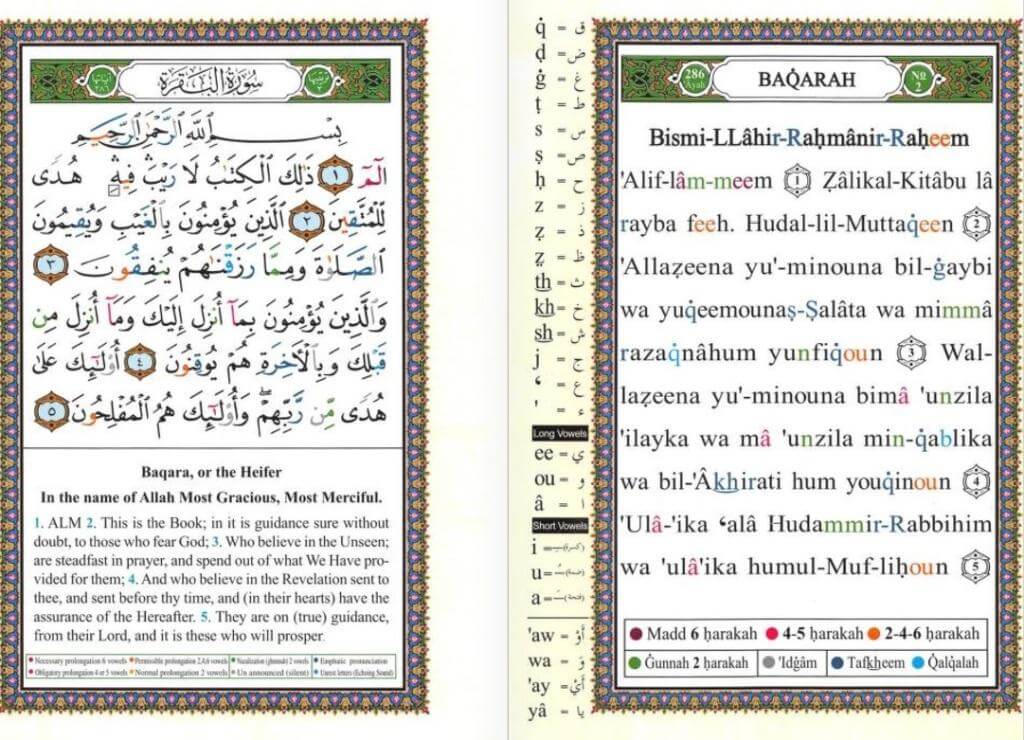 سُورَةُ الْبَقَرَةِ
بِسْمِ اللَّهِ الرَّحْمَٰنِ الرَّحِيمِ
الٓمٓ ١ ذَٰلِكَ الْكِتَابُ لَا رَيْبَ ۛ فِيهِ ۛ هُدًى
لِّلْمُتَّقِينَ ٢ الَّذِينَ يُؤْمِنُونَ بِالْغَيْبِ وَيُقِيمُونَ
الصَّلَوٰةَ وَمِمَّا رَزَقْنَاهُمْ يُنفِقُونَ ٣
وَالَّذِينَ يُؤْمِنُونَ بِمَآ أُنزِلَ إِلَيْكَ وَمَآ أُنزِلَ مِن
قَبْلِكَ وَبِالْآخِرَةِ هُمْ يُوقِنُونَ ٤ أُولَٰٓئِكَ عَلَىٰ
هُدًى مِّن رَّبِّهِمْ ۖ وَأُولَٰٓئِكَ هُمُ الْمُفْلِحُونَ ٥
Baqara, or the Heifer
In the name of Allah Most Gracious, Most Merciful.
1. ALM 2. This is the Book; in it is guidance sure without
doubt, to those who fear God; 3. Who believe in the Unseen;
are steadfast in prayer, and spend out of what We Have pro-
vided for them; 4. And who believe in the Revelation sent to
thee, and sent before thy time, and (in their hearts) have the
assurance of the Hereafter. 5. They are on (true) guidance,
from their Lord, and it is these who will prosper.
Necessary prolongation 6 vowels Permissible prolongation 2,4,6 vowels Nazalization (ghunnah) 2 vowels Emphatic pronunciation
Obligatory prolongation 4 or 5 vowels Normal prolongation 2 vowels Un announced (silent) Unrest letters (Echoing Sound)
q̇ = ق
ḍ = ض
ġ = غ
ṭ = ط
s = س
ṣ = ص
ḥ = ح
z = ز
ẓ = ذ
ẓ = ظ
th = ث
kh = خ
sh = ش
j = ج
ʻ = ع
' = ء
Long Vowels
ee = ي
ou = و
â = ا
Short Vowels
i = (كسرة)
u = (ضمة)
a = (فتحة)
'aw = أَوْ
wa = وَ
'ay = أَيْ
yâ = يا
286 Ayah BAQ̇ARAH № 2
Bismi-LLâhir-Raḥmânir-Raḥeem
'Alif-lâm-meem 1 Ẓâlikal-Kitâbu lâ
rayba feeh. Hudal-lil-Muttaq̇een 2
'Allaẓeena yu'-minouna bil-ġaybi
wa yuq̇eemounaṣ-Ṣalâta wa mimmâ
razaq̇nâhum yunfiq̇oun 3 Wal-
laẓeena yu'-minouna bimâ 'unzila
'ilayka wa mâ 'unzila min-q̇ablika
wa bil-'Âkhirati hum youq̇inoun 4
'Ulâ-'ika ʻalâ Hudammir-Rabbihim
wa 'ulâ'ika humul-Muf-liḥoun 5
Madd 6 ḥarakah 4-5 ḥarakah 2-4-6 ḥarakah
Ġunnah 2 ḥarakah 'Idġâm Tafkheem Q̇alq̇alah